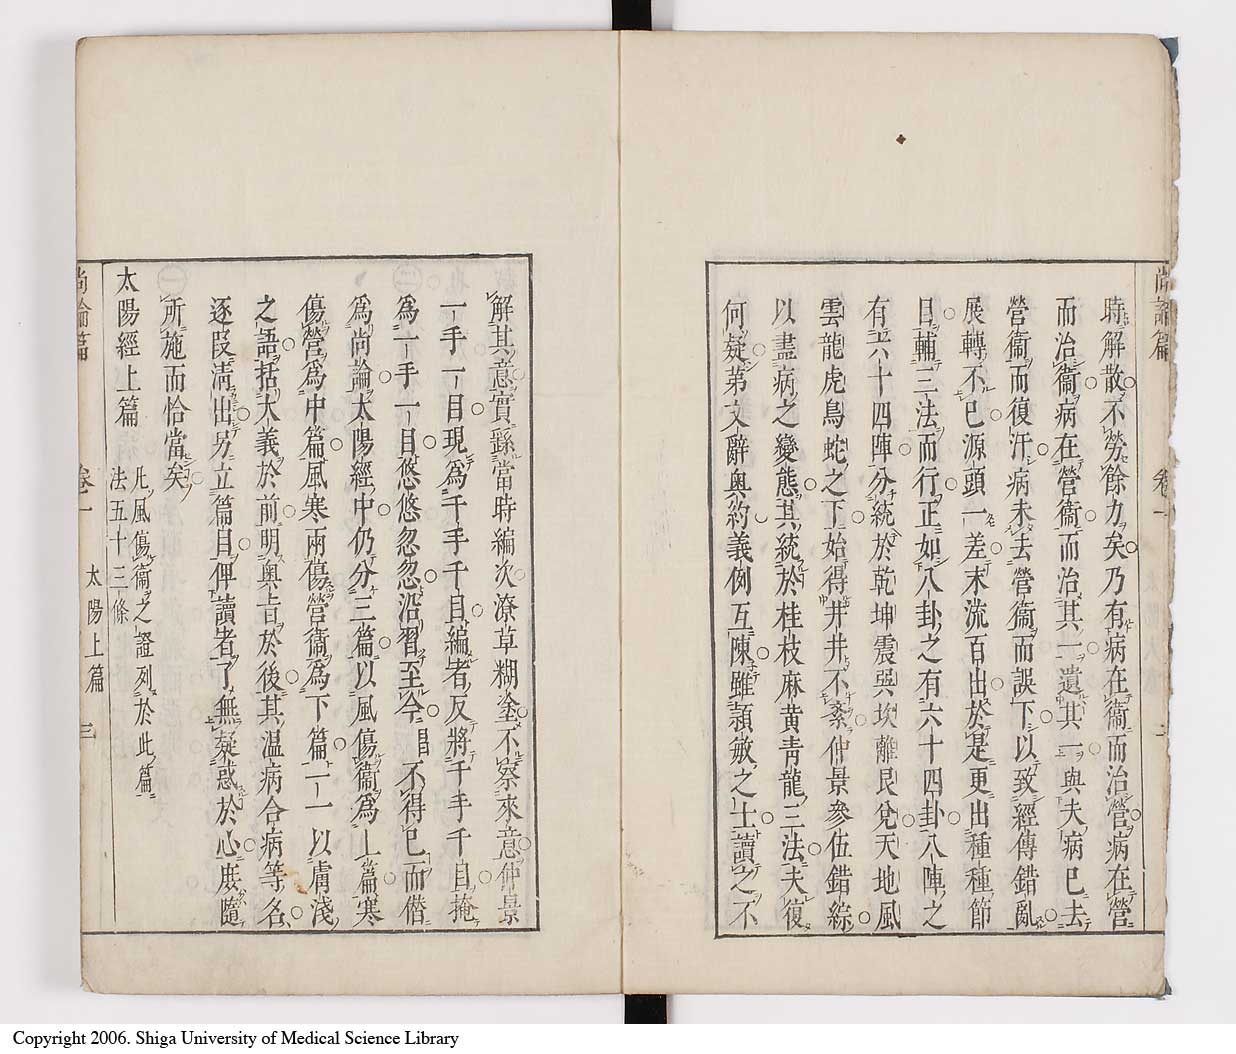 尚論篇 卷一 二
時解散不勞餘力矣乃有病在衞而治營病在營
而治衞病在營衞而治其一遺其一與夫病已去
營衞而復汗病未去營衞而誤下以致經傳錯亂
展轉不已源頭一差末流百出於是更出種種節
目輔三法而行正如八卦之有六十四卦八陣之
有六十四陣分統於乾坤震巽坎離艮兌天地風
雲龍虎鳥蛇之下始得井井不紊仲景參伍錯綜
以盡病之變態其統於桂枝麻黃靑龍三法夫復
何疑第文辭奧約義例互陳雖頴敏之士讀之不
解其意實繇當時編次潦草糊塗不察來意仲景
一手一目現爲千手千目編者反將千手千目掩
爲一手一目悠悠忽忽沿習至今昌不得已而僭
爲尚論太陽經中仍分三篇以風傷衞爲上篇寒
傷營爲中篇風寒兩傷營衞爲下篇一一以膚淺
之語括大義於前明奧旨於後其溫病合病等名
逐段淸出另立篇目俾讀者了無疑惑於心庶隨
所施而恰當矣
太陽經上篇 凢風傷衞之證列於此篇
法五十三條
尚論篇 卷一 太陽上篇 三
Copyright 2006. Shiga University of Medical Science Library